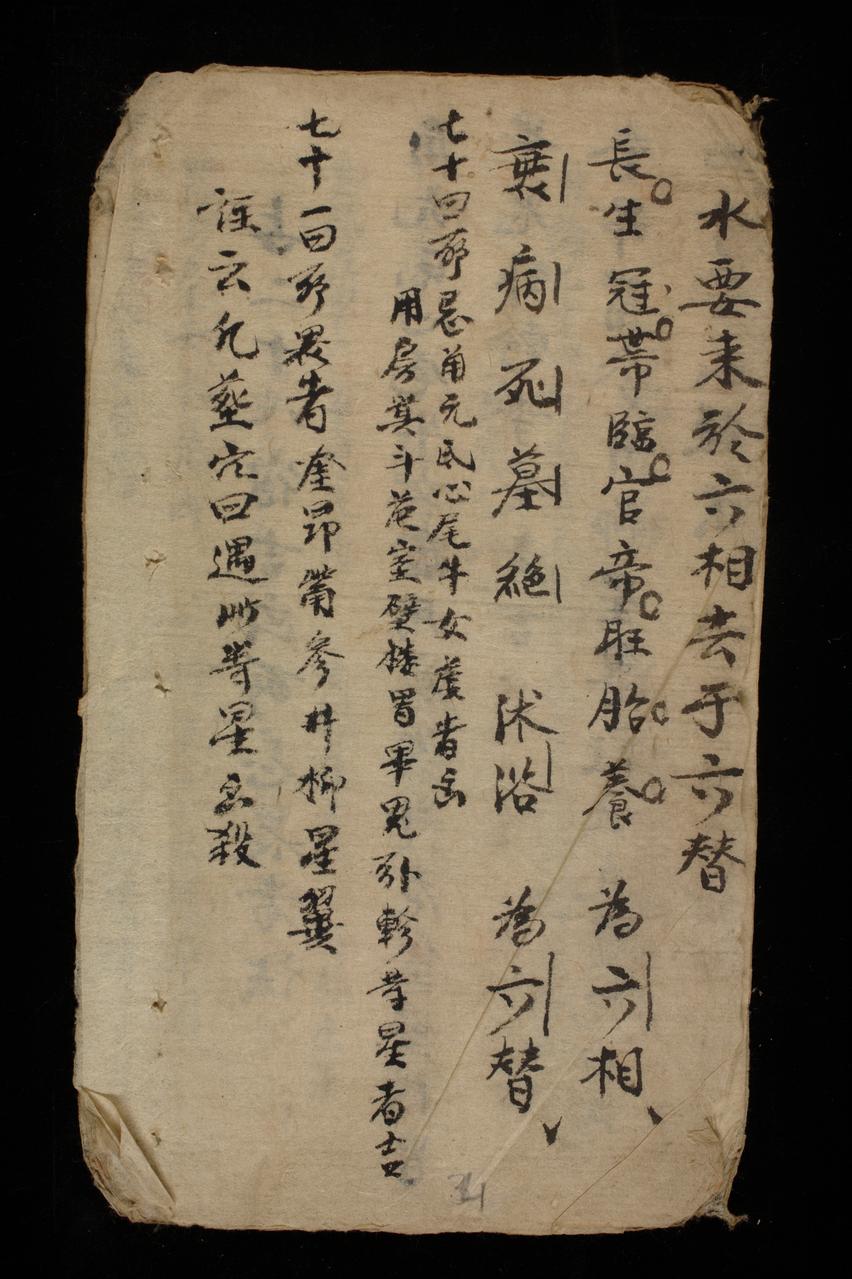 水要来於六相去于六替
長生冠帶臨官帝旺胎養 為六相
衰病死墓絶 沐浴 為六替
七十曰所忌角亢氐心尾牛女虚者凶
用房箕斗危室壁楼胃畢鬼張軫等星者吉
七十一曰所畏者奎昴觜参井柳星翼
註云凡葬穴曰遇此等星凶殺
31